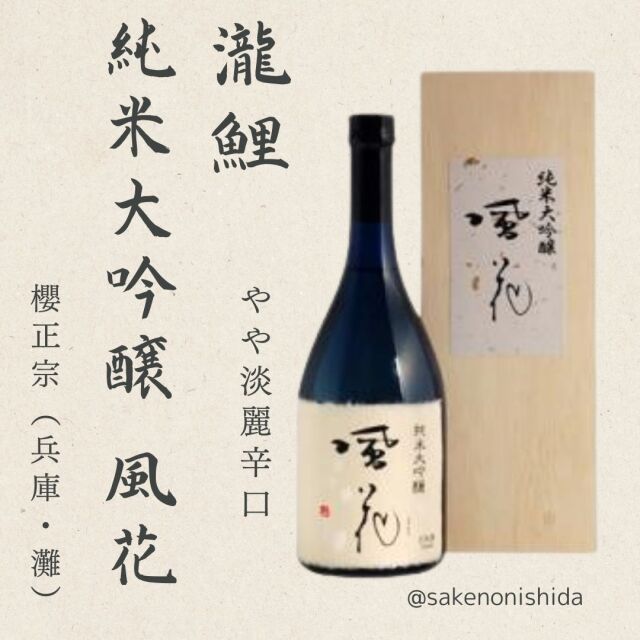 瀧鯉
純米大吟醸 風花
やや淡麗辛口
櫻正宗（兵庫・灘）
純米大吟醸
風花
純米大吟醸
風花
@sakenonishida